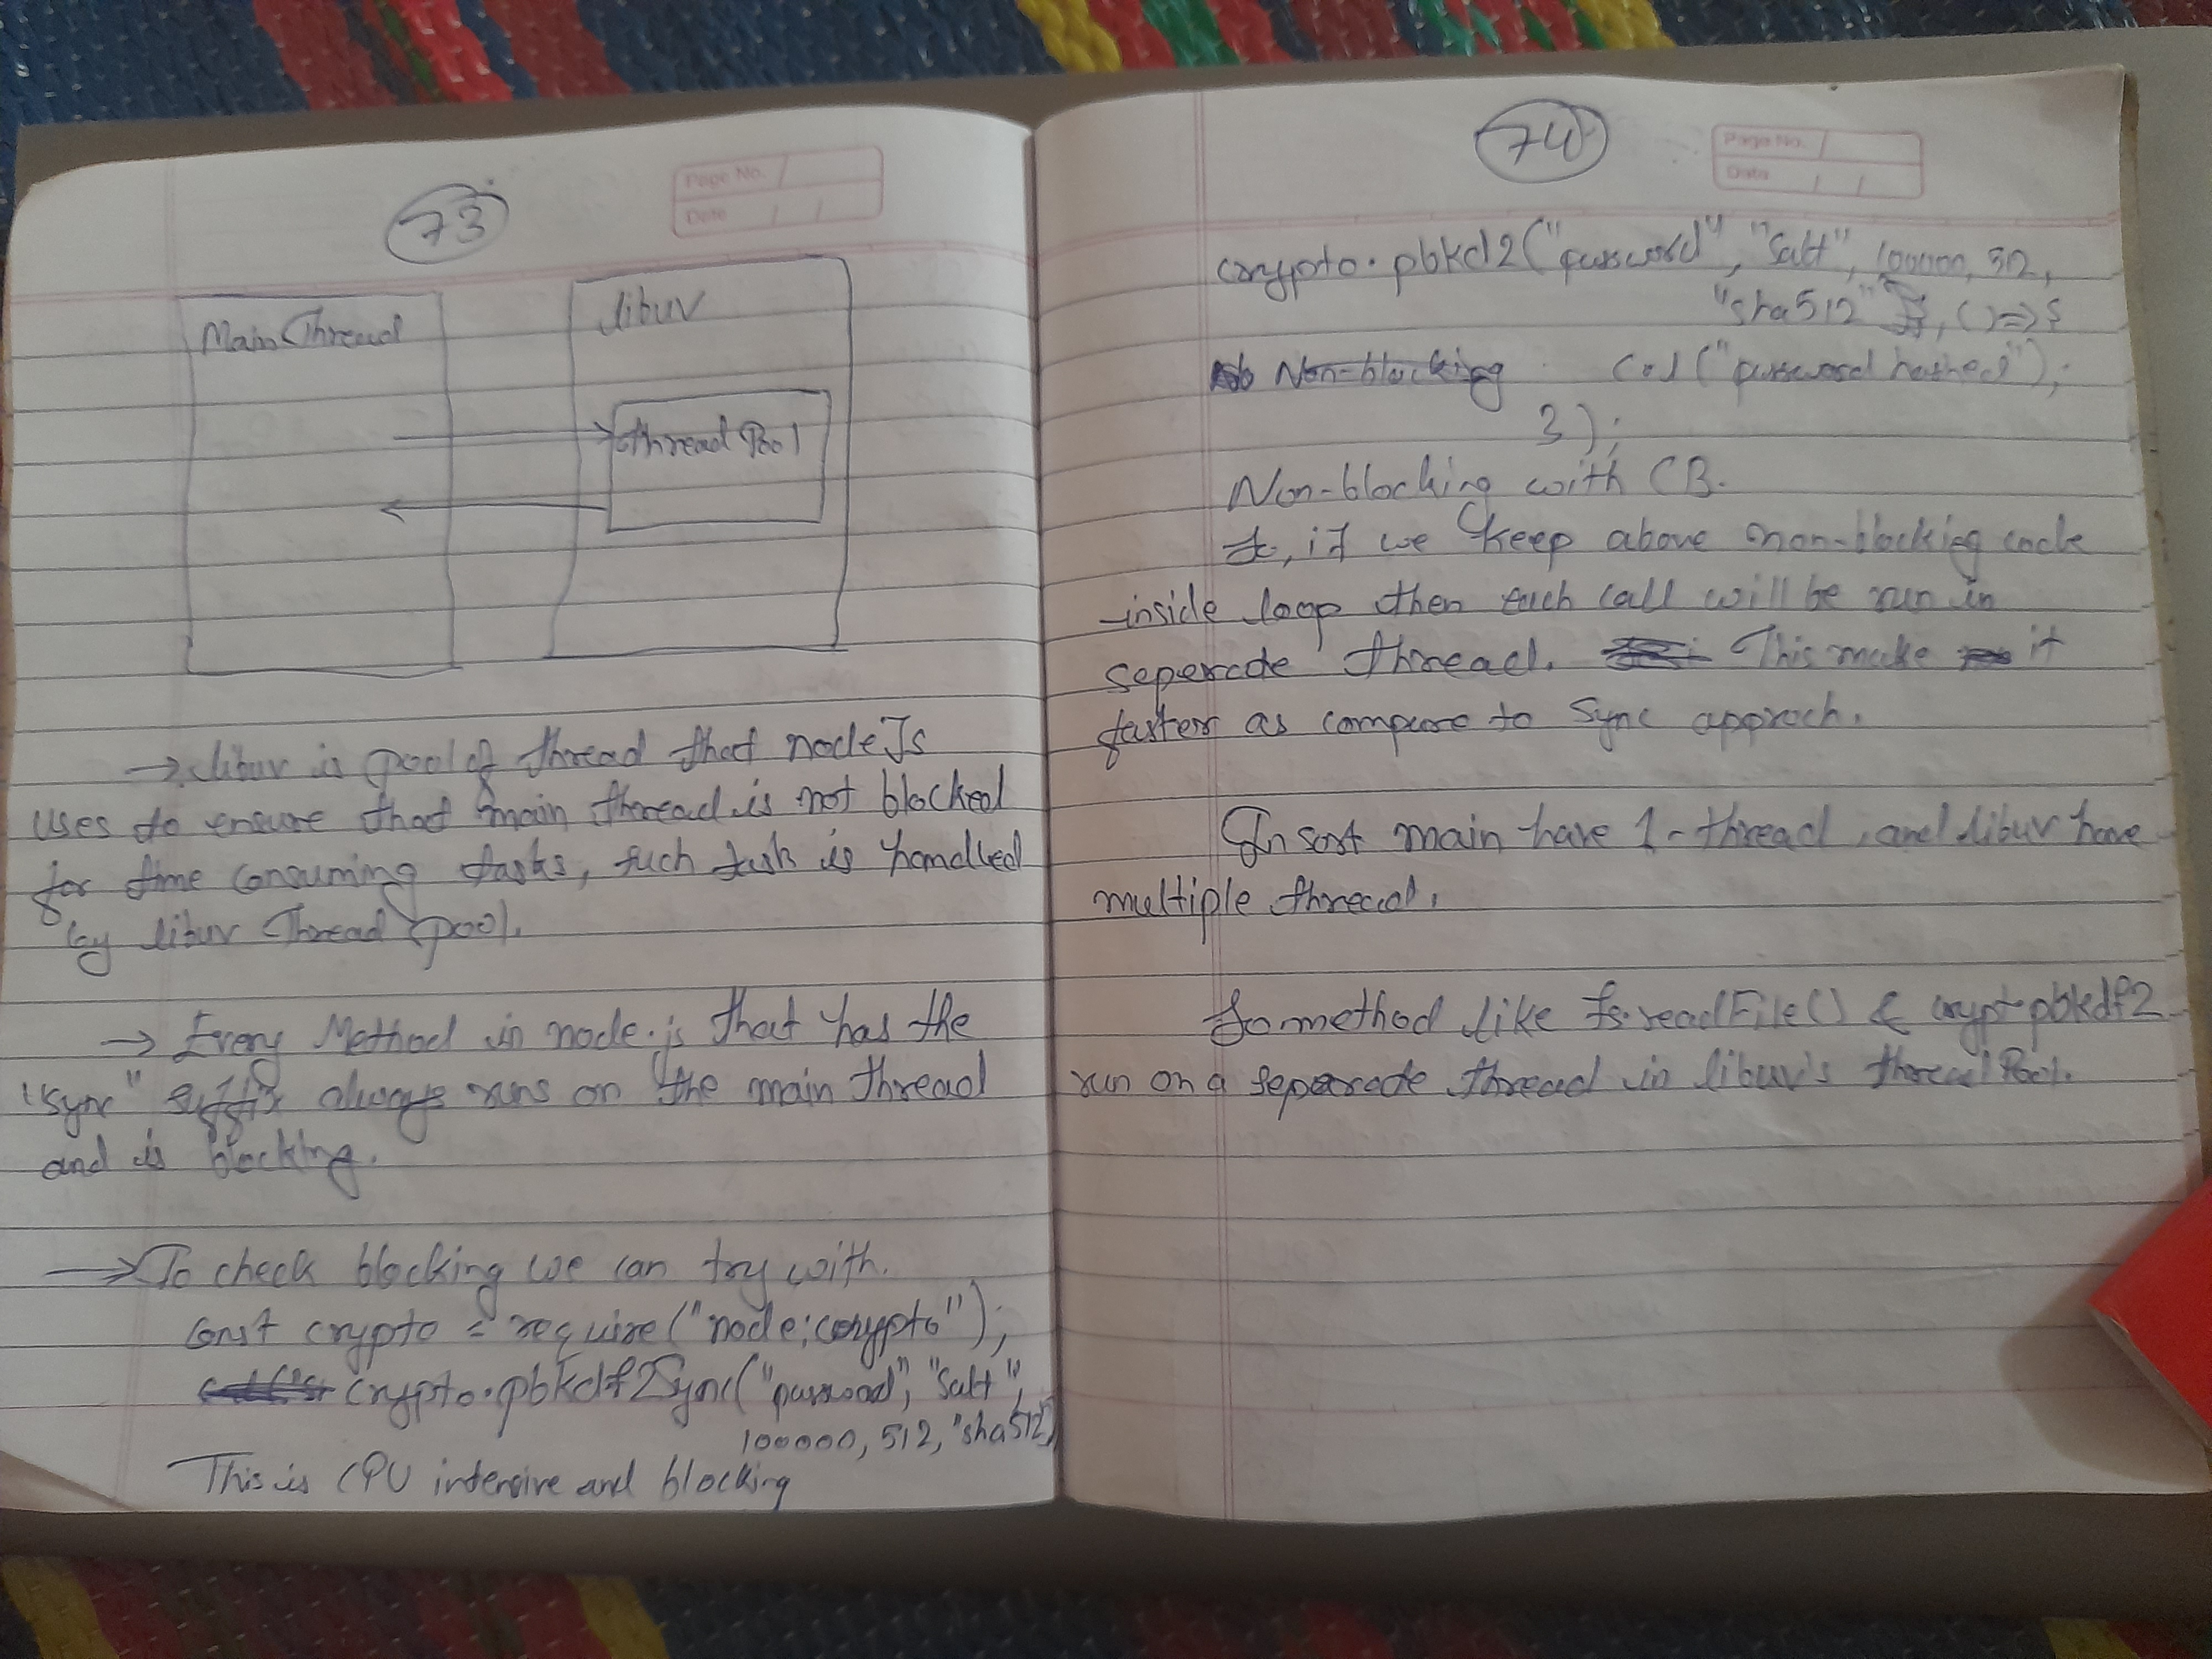 73
Page No.
Date
Main Thread
libuv
thread Pool
→ libuv is pool of thread that node Js
uses to ensure that main thread is not blocked
for time consuming tasks, such task is handled
by libuv Thread pool.
→ Every Method in node.js that has the
"sync" suffix always runs on the main thread
and is blocking.
→ To check blocking we can try with.
const crypto = require("node:crypto");
crypto.pbkdf2Sync("password", "salt",
100000, 512, "sha512")
This is CPU intensive and blocking
74
Page No.
Date
crypto.pbkd2("password", "Salt", 100000, 512,
"sha512", () => {
Non-blocking c.l("password hashed");
});
Non-blocking with CB.
So, if we keep above non-blocking code
inside loop then each call will be run in
seperate thread. This make it
faster as compare to Sync approch.
In sort main have 1-thread, and libuv have
multiple thread.
So method like fs.readFile() & crypt.pbkdf2
run on a seperate thread in libuv's thread Pool.